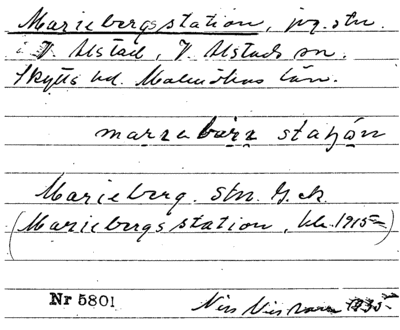 Mariebergsstation, jvg.stn.
i V. Alstad, V. Alstads sn.
Skytts hd. Malmöhus län.
marrabärr staʃǫ́n
Marieberg. stn. G.k.
(Mariebergsstation, bk. 1915)
Nr 5801
Nils 1935